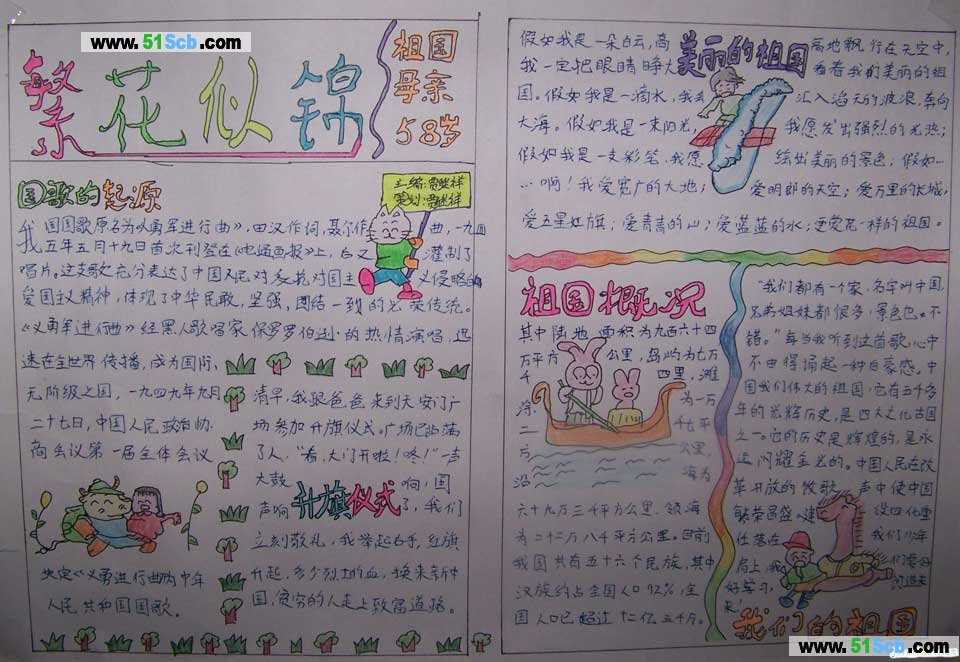 www.51Scb.com
繁花似锦
祖国
母亲
58岁
国歌的起源
主编:
策划:
我国国歌原名为《义勇军进行曲》,田汉作词,聂尔作曲,一九三
五年五月十九日首次刊登在《电通画报》上,后又灌制了
唱片。这支歌充分表达了中国人民对
爱国主义精神,体现了中华民敢,坚强,团结一致的光荣传统。
《义勇军进行曲》经黑人歌唱家保罗罗伯逊的热情演唱,迅
速在全世界传播,成为国际
无阶级之国,一九四九年九月
二十七日,中国人民政府协
商会议第一届全体会议
决定《义勇进行曲》为中华
人民共和国国歌。
升旗仪式
清早,我跟爸爸来到天安门广
场参加升旗仪式。广场已站满
了人,“看,大门开啦!咚!”一声
大鼓响,国
声响了,我们
立刻敬礼,我举起右手,红旗
升起,多少烈士的血,换来新中
国,贫穷的人走上致富道路。
美丽的祖国
假如我是一朵白云,高高地飘行在天空中,
我一定把眼睛睁大看看我们美丽的祖
国。假如我是一滴水,我会汇入滔天的波浪,奔向
大海。假如我是一束阳光,我愿发出强烈的光热;
假如我是一支彩笔,我愿绘出美丽的景色;假如…
…啊!我爱宽广的大地;爱明郎的天空;爱万里的长城,
爱五星红旗;爱青青的山;爱蓝蓝的水;更爱花一样的祖国。
祖国概况
其中陆地面积为九百六十四
万平方公里,岛屿为七万
千四里,滩
涂为一万
二千七平
万公里,
沿海为
六十九万三千平方公里,领海
为二十二万八千平方公里。目前
我国共有五十六个民族,其中
汉族约占全国人口92%,全
国人口已超过十二亿五千万。
“我们都有一个家,名字叫中国,
兄弟姐妹都很多,景色也不
错。”每当我听到这首歌,心中
不由得涌起一种自豪感。中
国我们伟大的祖国,它有五千多
年的光辉历史,是四大文化古国
之一。它的历史是辉煌的,是永
远闪耀金光的。中国人民在改
革开放的牧歌声中使中国
繁荣昌盛,建设四化重
任落在我们少年
肩上,我们要好
好学习,
来!
我们的祖国
www.51Scb.com